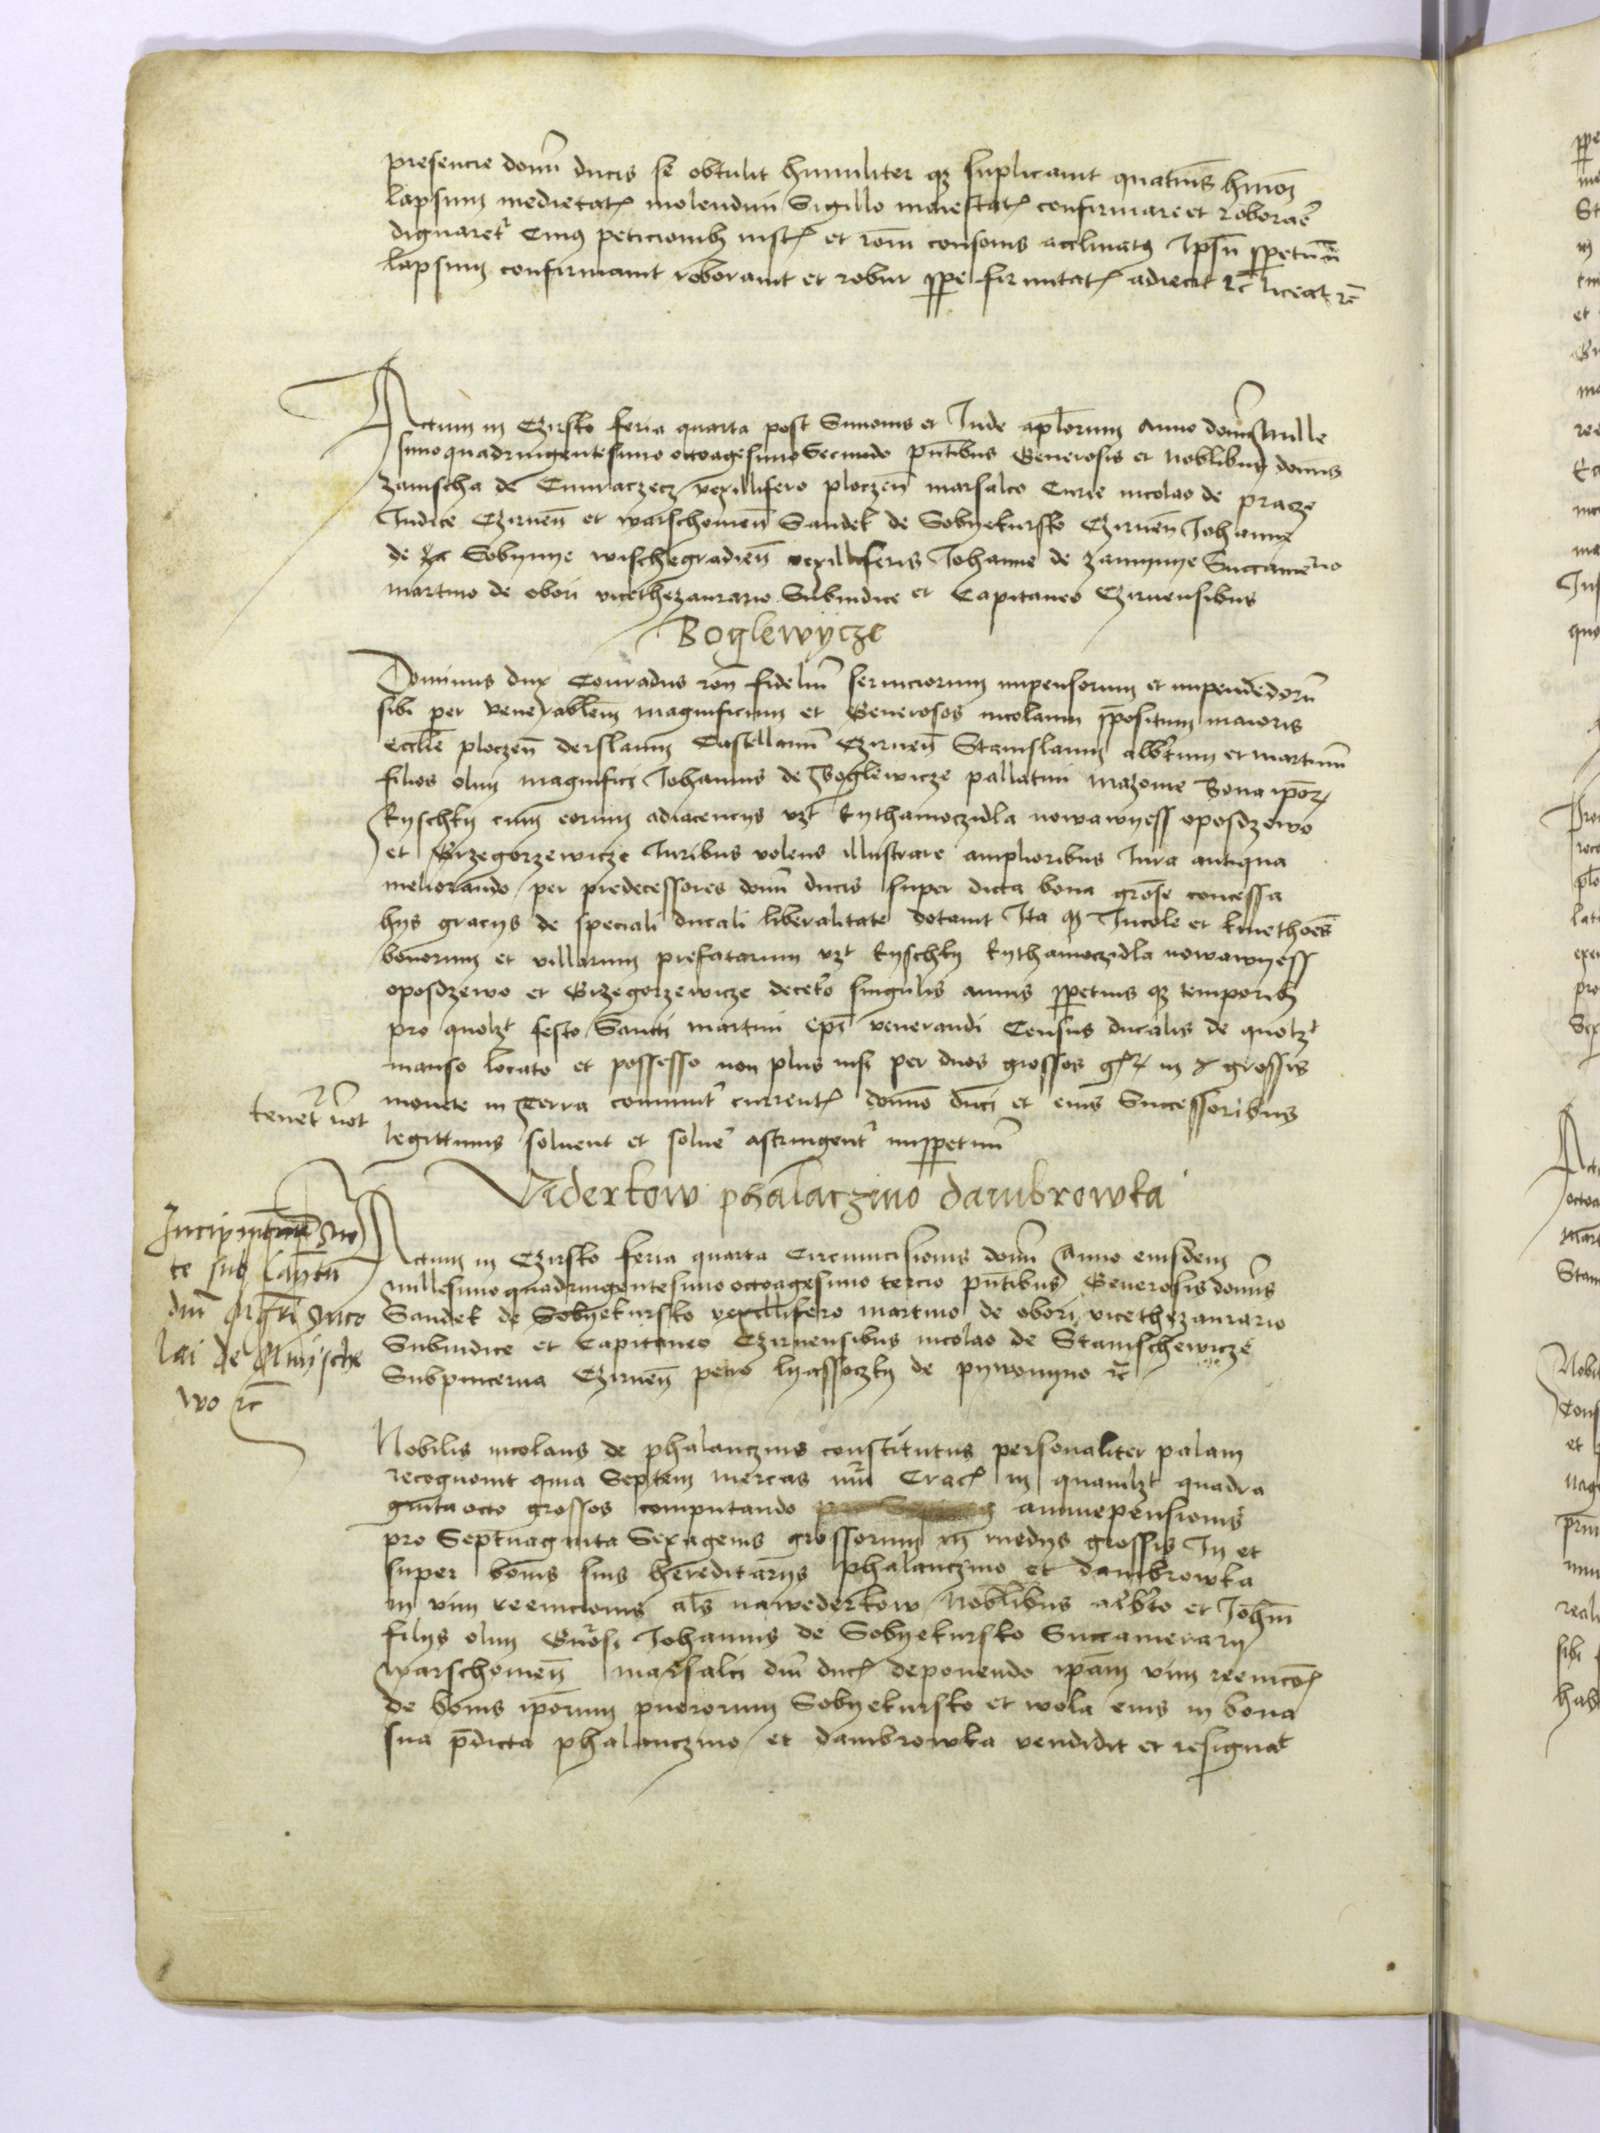 presencie domini ducis se obtulit humiliter qz suplicavit quatenus hmoi
lapsum medietatis molendini Sigillo maiestatis confirmare et roborare
dignaretur Cuius peticionibus iustis et roni consonis acclinatus Ipsum ppetuum
lapsum confirmavit roboravit et robur ppe firmitatis adiecit rc liceat rc
Actum in Czirsko feria quarta post Simonis et Jude aplorum Anno domini Mille
simo quadringentesimo octoagesimo Secundo pntibus Generosis et Noblibus dominis
zamscha de vexillifero ploczen marsalco Curie nicolao de pracze
Judice Czirnen et warschouien Sandek de Sobyekursko Czirnen Johanne
de Sobynye wischegradien vexilliferis Johanne de zamynye Succamerario
martino de obori vicethezaurario Subiudice et Capitaneo Czirnensibus
Boglewycze
Dominus dux Conradus ron fidelium serviciorum impensorum et impendedorum
sibi per venerablem magnificum et Generosos nicolaum ppositum maioris
ecclie ploczen derslaum Castellanum Czirnen Stanislaum albtum et martinum
filios olim magnifici Johannis de Boglewicze pallatini mazouie Bona ipor
Ryschky cum eorum adiacencys vzt Rythamoczidla nowawyess oposdzewo
et Grzegorzewicze Juribus volens illustrare amplioribus Jura antiqua
meliorando per predecessores domini ducis super dicta bona grose concessa
hys gracys de speciali ducali liberalitate dotavit Ita qz Incole et kmethoes
bonorum et villarum prefatarum vzt Ryschky Rythamoczidla nowawyess
oposdzewo et Grzegorzewicze decetero singulis annis ppetuis qz temporibus
pro quolzt festo Sancti martini epi venerandi Census ducalis de quolzt
manso locato et possesso non plus nisi per duos grossos in grossis
monete in Terra communiter currentis domino duci et eius Successoribus
legittimis solvent et solvere astringentur inppetuum
tenetur
Viderkow phalaczino dambrowka
Actum in Czirsko feria quarta Circumcisionis domini Anno eiusdem
millesimo quadringentesimo octoagesimo tercio pntibus Generosis dominis
Sandek de Sobyekursko vexillifero martino de obori vicethezaurario
Subiudice et Capitaneo Czirnensibus nicolao de Stanischewicze
Subpincerna Czirnen petro lyassoczky de pywonyno rc
Incipi
te sub
dni nico
lai de
wo rc
Nobilis nicolaus de phalanczino constitutus personaliter palam
recognovit quia Septem mercas Crac in quamlzt quadra
ginta octo grossos computando annue pensionis
pro Septuaginta Sexagenis grossorum in medys grossis In et
super bonis suis hereditarys phalanczino et dambrowka
in vim reempcionis als nawederkow Noblibus albto et Johni
filys olim Gnosi Johannis de Sobyekursko Succamerary
warschouien marsalci dni ducis deponendo ipam vim reempcois
de bonis iporum puerorum Sobyekursko et wola eius in bona
sua pdicta phalanczino et dambrowka vendidit et resignat